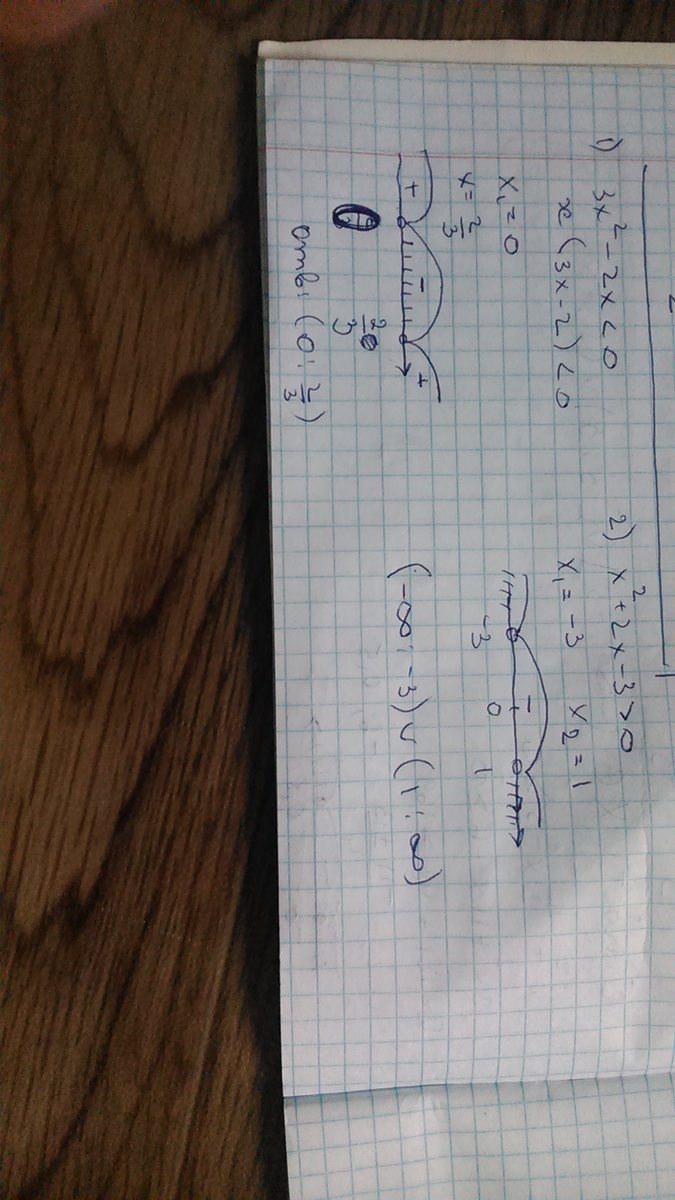 1) 3x² - 2x < 0
x (3x-2) < 0
x₁ = 0
x = 2/3
+ - +
0 2/3
отв: (0; 2/3)
2) x² + 2x - 3 > 0
x₁ = -3 x₂ = 1
-
-3 0 1
(-∞; -3) ∪ (1; ∞)